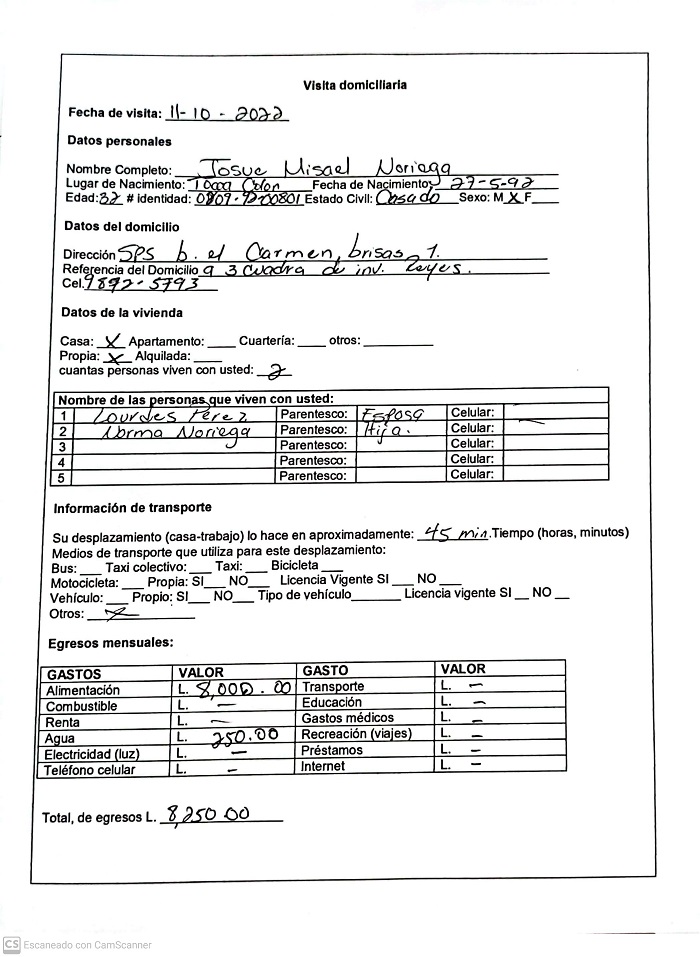 Visita domiciliaria
Fecha de visita: 11-10-2022
Datos personales
Nombre Completo: Josue Misael Noriega
Lugar de Nacimiento: Tocoa Colon Fecha de Nacimiento: 27-5-92
Edad: 32 # identidad: Estado Civil: Casado Sexo: M X F
Datos del domicilio
Dirección SPS b. el Carmen, brisas 1.
Referencia del Domicilio a 3 cuadra de inv. Reyes.
Cel. 9892-5793
Datos de la vivienda
Casa: X Apartamento: ____ Cuartería: ____ otros: ____
Propia: X Alquilada: ____
cuantas personas viven con usted: 2
Nombre de las personas que viven con usted:
1 Lourdes Perez Parentesco: Esposa Celular: —
2 Norma Noriega Parentesco: Hija. Celular:
3 Parentesco: Celular:
4 Parentesco: Celular:
5 Parentesco: Celular:
Información de transporte
Su desplazamiento (casa-trabajo) lo hace en aproximadamente: 45 min. Tiempo (horas, minutos)
Medios de transporte que utiliza para este desplazamiento:
Bus: ___ Taxi colectivo: ___ Taxi: ___ Bicicleta ___
Motocicleta: ___ Propia: SI ___ NO ___ Licencia Vigente SI ___ NO ___
Vehículo: ___ Propio: SI ___ NO ___ Tipo de vehículo ______ Licencia vigente SI __ NO __
Otros: X
Egresos mensuales:
GASTOS VALOR GASTO VALOR
Alimentación L. 8,000.00 Transporte L. —
Combustible L. — Educación L. —
Renta L. — Gastos médicos L. —
Agua L. 250.00 Recreación (viajes) L. —
Electricidad (luz) L. — Préstamos L. —
Teléfono celular L. — Internet L. —
Total, de egresos L. 8,250.00
CS Escaneado con CamScanner